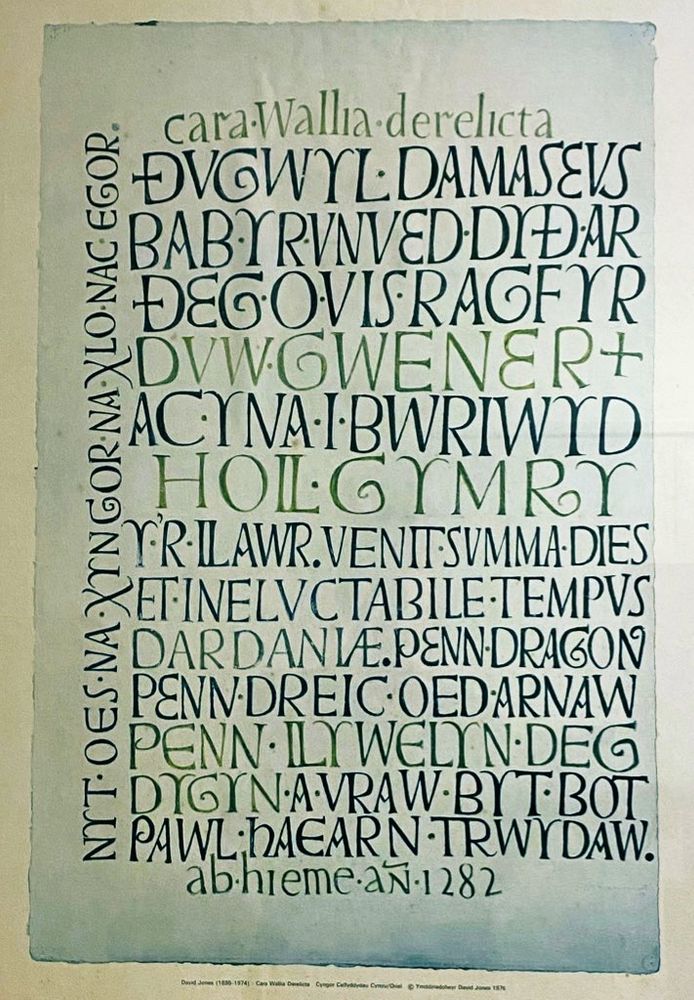 cara·Wallia·derelicta
ÐVGWYL·DAMASEVS
BAB·YR·VNVED·DYÐ·AR
ÐEG·O·VIS·RAGFYR
DVW·GWENER+
AC·YNA·I·BWRIWYD
HOLL·GYMRY
Y'R·LLAWR.VENIT·SVMMA·DIES
ET·INELVCTABILE·TEMPVS
DARDANIÆ.PENN·DRAGON
PENN·DREIC·OED·ARNAW
PENN·LLYWELYN·DEG
DYGYN·A·VRAW·BYT·BOT
PAWL·hAEARN·TRWYDAW.
ab·hieme·aÑ·1282
NYT·OES·NA·XYNGOR·NA·XLO·NAC·EGOR.
David Jones (1895-1974) : Cara Wallia Derelicta Cyngor Celfyddydau Cymru/Oriel © Ymddiriedolwyr David Jones 1976